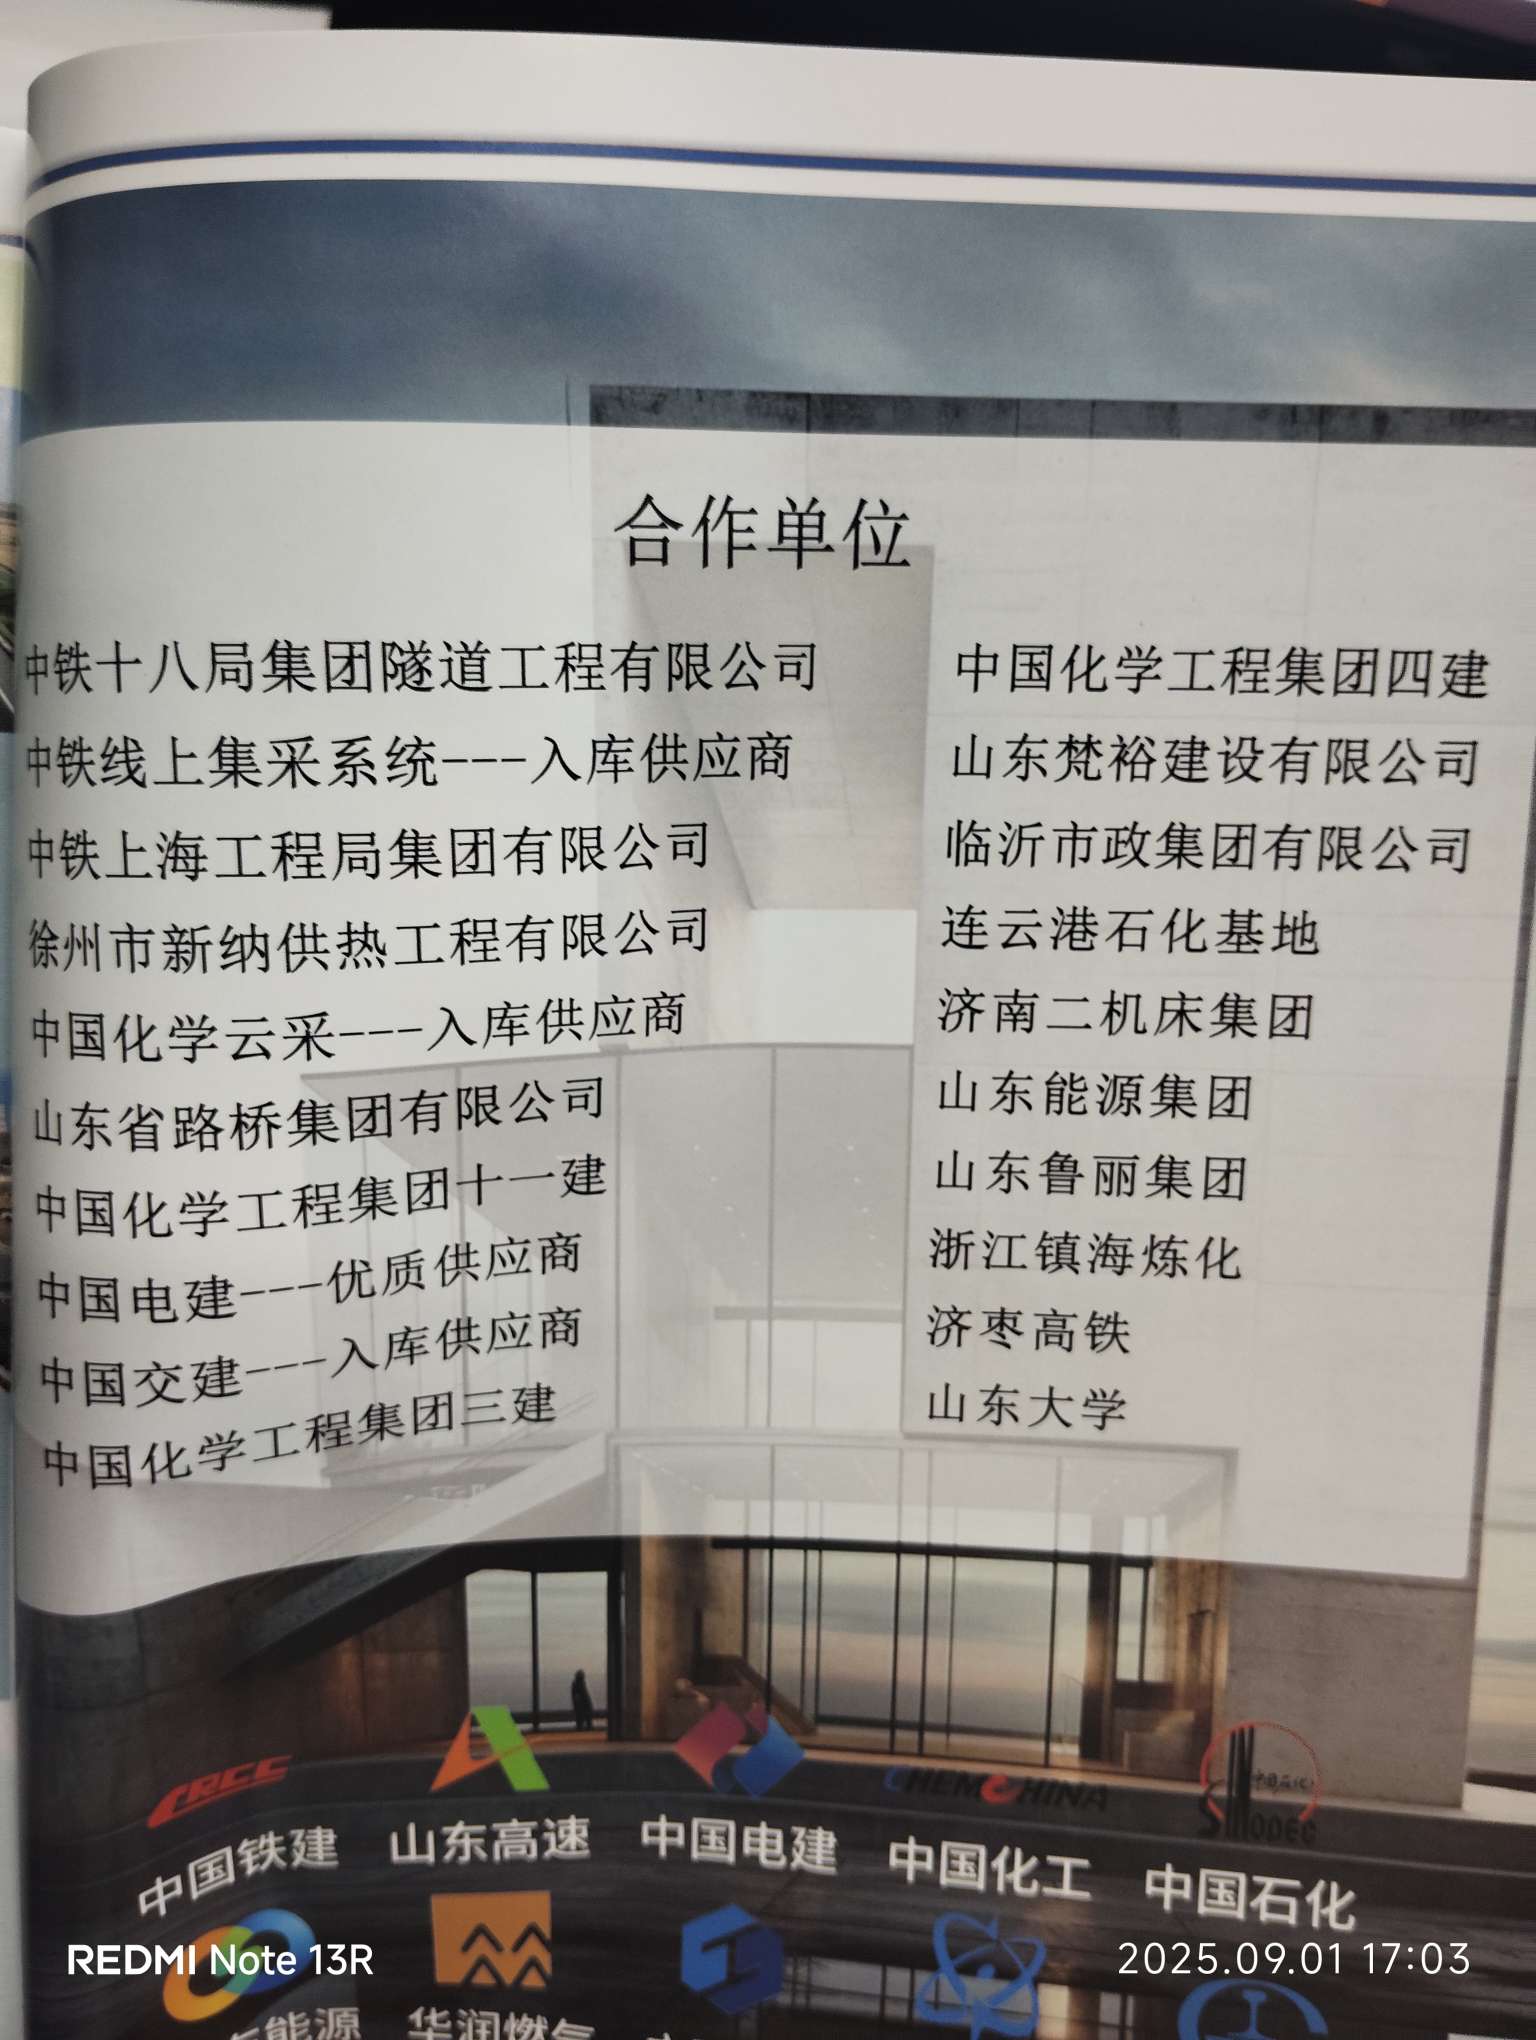 合作单位
中铁十八局集团隧道工程有限公司
中铁线上集采系统---入库供应商
中铁上海工程局集团有限公司
徐州市新纳供热工程有限公司
中国化学云采---入库供应商
山东省路桥集团有限公司
中国化学工程集团十一建
中国电建---优质供应商
中国交建---入库供应商
中国化学工程集团三建
中国化学工程集团四建
山东梵裕建设有限公司
临沂市政集团有限公司
连云港石化基地
济南二机床集团
山东能源集团
山东鲁丽集团
浙江镇海炼化
济枣高铁
山东大学
CRCC
中国铁建
山东高速
中国电建
CHEMCHINA
中国化工
中国石化
SINOPEC
中国石化
能源
华润燃气
REDMI Note 13R
2025.09.01 17:03